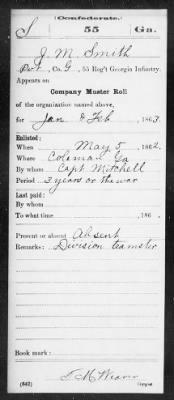 (Confederate.)
S 55 Ga.
J. M. Smith
Pvt, Co. G, 55 Reg't Georgia Infantry.
Appears on
Company Muster Roll
of the organization named above,
for Jan & Feb, 1863.
Enlisted:
When May 5, 1862.
Where Coleman Ga
By whom Capt Mitchell
Period 3 years or the war
Last paid:
By whom
To what time , 186 .
Present or absent Absent
Remarks: Division teamster
Book mark:
J. M. Weaver
(642) Copyist.